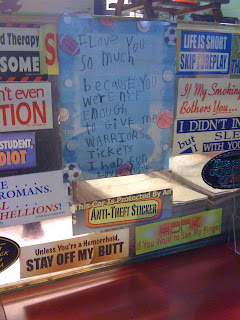 d Therapy
SOME
n't even
TION
STUDENT,
DIOT
ROMANS.
HELLIONS!
I Love You
so Much
because you
were NICE
ENOUGH
to Give me
WARRIORS
Tickets
I had fun
This Car Is Protected By An
ANTI-THEFT STICKER
Unless You're a Hemorrhoid,
STAY OFF MY BUTT
LIFE IS SHORT
SKIP FOREPLAY
If My Smoking
Bothers You...
I DIDN'T IN
but SLE
WITH YOU
HONK
If You Want to See My Finger